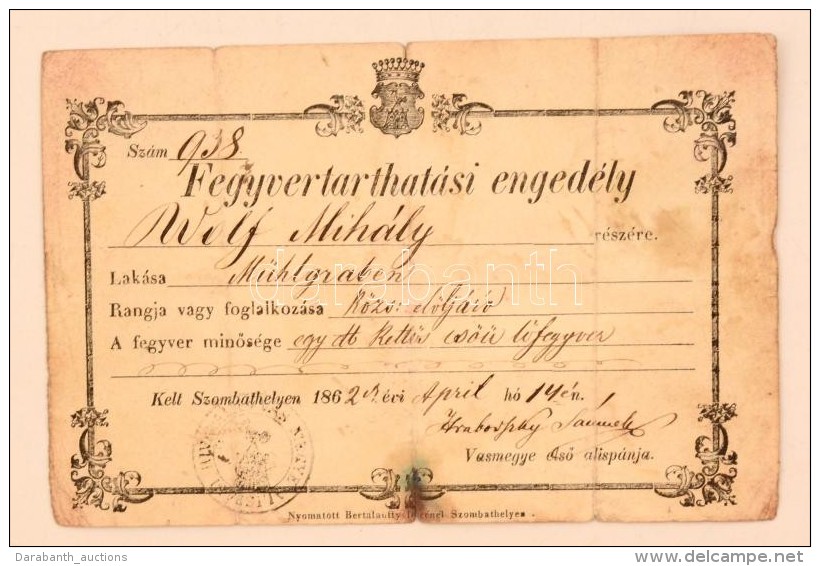 Szám 938.
Fegyvertarthatási engedély
Wolf Mihály részére.
Lakása Mühlgraben
Rangja vagy foglalkozása közs: elöljáró
A fegyver minősége egy db kettős csöü lőfegyver
Kelt Szombathelyen 1862 dik évi April hó 14én.
Vasmegye első alispánja.
Nyomatott Bertalanffy Szombathelyen.
darabanth
Darabanth_auctions